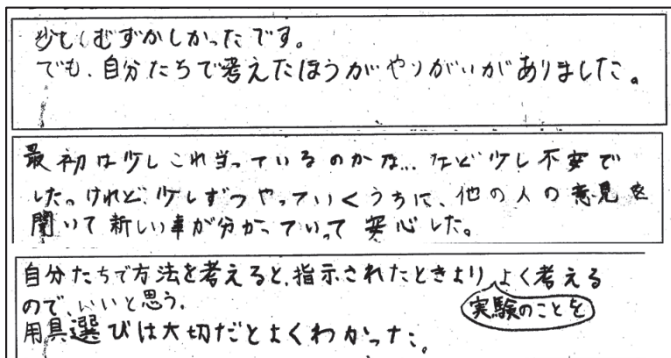 少しむずかしかったです。
でも、自分たちで考えたほうがやりがいがありました。
最初は少しこれ当っているのかな…など少し不安で
したけれど、少しずつやっていくうちに、他の人の意見を
聞いて新しい事が分かっていって安心した。
自分たちで方法を考えると、指示されたときより、よく考える
ので、いいと思う。
実験のことを
用具選びは大切だとよくわかった。